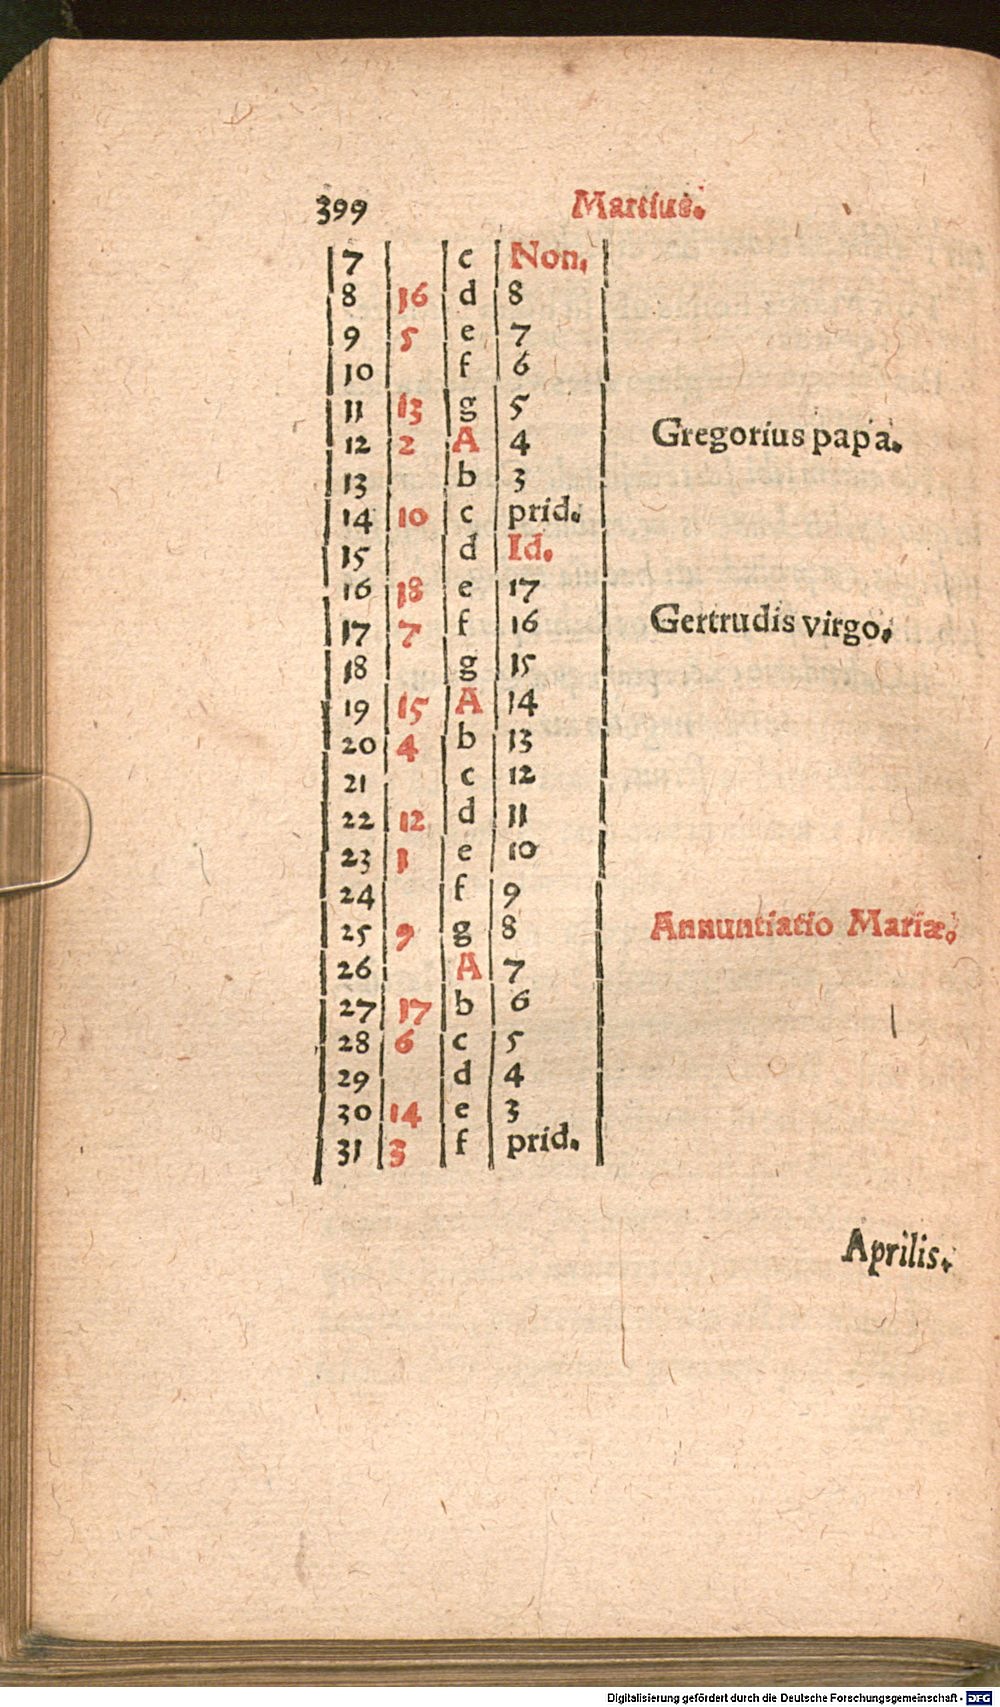 399 Martius.
7 c Non.
8 16 d 8
9 5 e 7
10 f 6
11 13 g 5
12 2 A 4 Gregorius papa.
13 b 3
14 10 c prid.
15 d Id.
16 18 e 17
17 7 f 16 Gertrudis virgo.
18 g 15
19 15 A 14
20 4 b 13
21 c 12
22 12 d 11
23 1 e 10
24 f 9
25 9 g 8 Annuntiatio Mariæ.
26 A 7
27 17 b 6
28 6 c 5
29 d 4
30 14 e 3
31 3 f prid.
Aprilis.
Digitalisierung gefördert durch die Deutsche Forschungsgemeinschaft - DFG